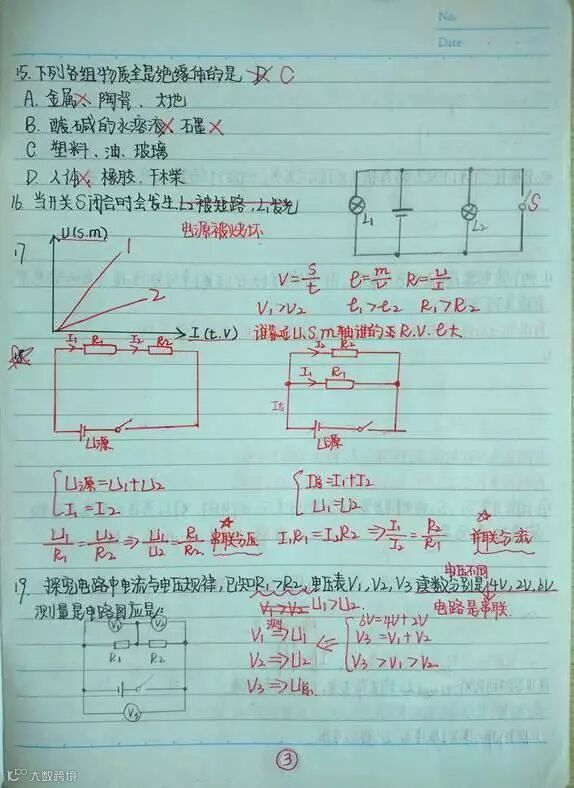 No.
Date
15.下列各组物质全是绝缘体的是 D C
A. 金属×、陶瓷、大地
B. 酸.碱的水溶液×、石墨×
C. 塑料、油、玻璃
D. 人体×、橡胶、干木柴
16. 当开关S闭合时会发生L2被短路,L1发光
电源被烧坏
L1 L2 S
17
U(s.m)
1
2
I(t.V)
V=s/t ρ=m/v R=U/I
V1>V2 ρ1>ρ2 R1>R2
谁靠近U.S.m轴谁的R.V.ρ大
I1 R1 I2 R2
U源
I2 R2
I1 R1
I总
U源
U源=U1+U2
I1=I2
U1/R1=U2/R2⇒U1/U2=R1/R2 串联分压
I总=I1+I2
U1=U2
I1R1=I2R2⇒I1/I2=R2/R1 并联分流
19. 探究电路中电流与电压规律,已知R1>R2,电压表V1,V2,V3读数分别是4V,2V,6V
电压不同
电路是串联
测量是电路图应是
V1>V2 U1>U2
测
V1⇒U1
V2⇒U2
V3⇒U源
6V=4V+2V
V3=V1+V2
V3>V1>V2
V1 V2
R1 R2
V3
3
大数跨境